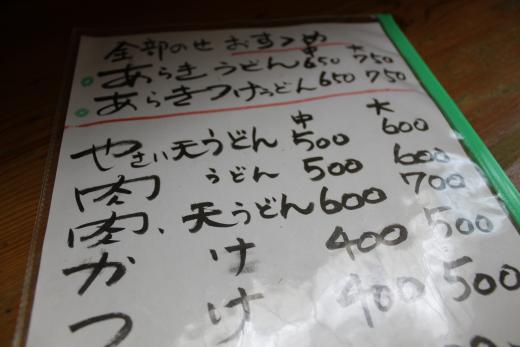 全部のせ おすすめ
中 大
あらきうどん 650 750
あらきつけうどん 650 750
中 大
やさい天うどん 500 600
肉うどん 500 600
肉、天うどん 600 700
かけ 400 500
つけ 400 500